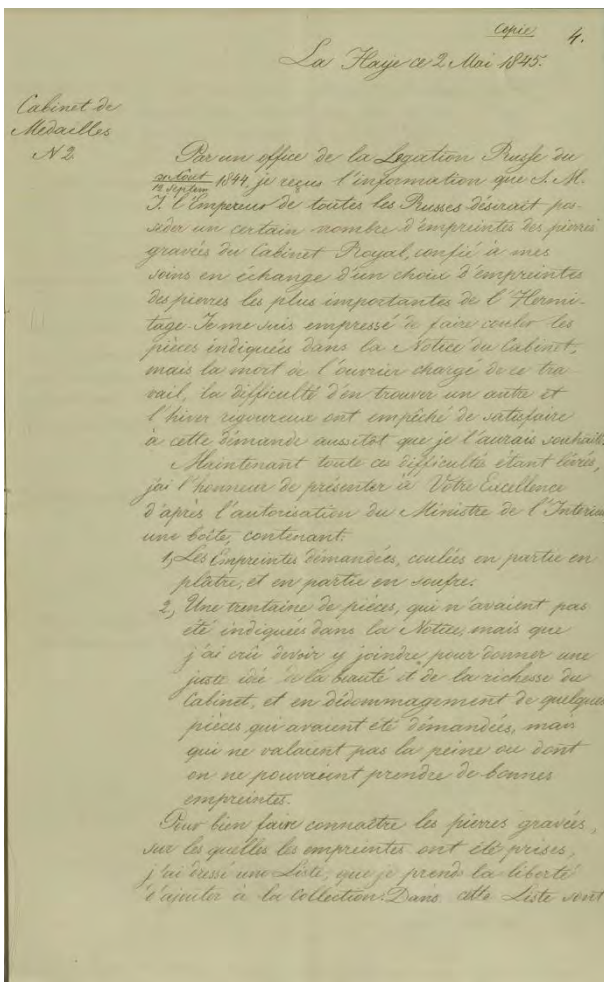 Copie
4.
La Haye ce 2 Mai 1845.
Cabinet de
Medailles
N 2
Par un office de la Legation Russe du
Aout
12 Septem 1844. je reçus l'information que S. M.
I. l'Empereur de toutes les Russes désirait pos-
séder un certain nombre d'empreintes des pierres
gravées du Cabinet Royal, confié à mes
soins en échange d'un choix d'empreintes
des pierres les plus importantes de l'Hermi-
tage. Je me suis empressé de faire couler les
pièces indiquées dans la Notice du Cabinet,
mais la mort de l'ouvrier chargé de ce tra-
vail, la difficulté d'en trouver un autre et
l'hiver rigoureux ont empêché de satisfaire
à cette démande aussitot que je l'aurais souhaité.
Maintenant toute ces difficultés étant levées,
j'ai l'honneur de présenter à Votre Excellence
d'après l'autorisation du Ministre de l'Interieur
une boîte, contenant:
1, Les Empreintes démandées, coulées en partie en
plâtre, et en partie en soufre.
2, Une trentaine de pièces, qui n'avaient pas
été indiquées dans la Notice, mais que
j'ai crû devoir y joindre pour donner une
juste idé de la beauté et de la richesse du
Cabinet, et en dédommagement de quelques
pièces qui avaient été démandées, mais
qui ne valaient pas la peine ou dont
on ne pouvaient prendre de bonnes
empreintes.
Pour bien faire connaître les pierres gravées,
sur les quelles les empreintes ont été prises,
j'ai dressé une Liste, que je prends la liberté
d'ajouter à la Collection. Dans cette Liste sont